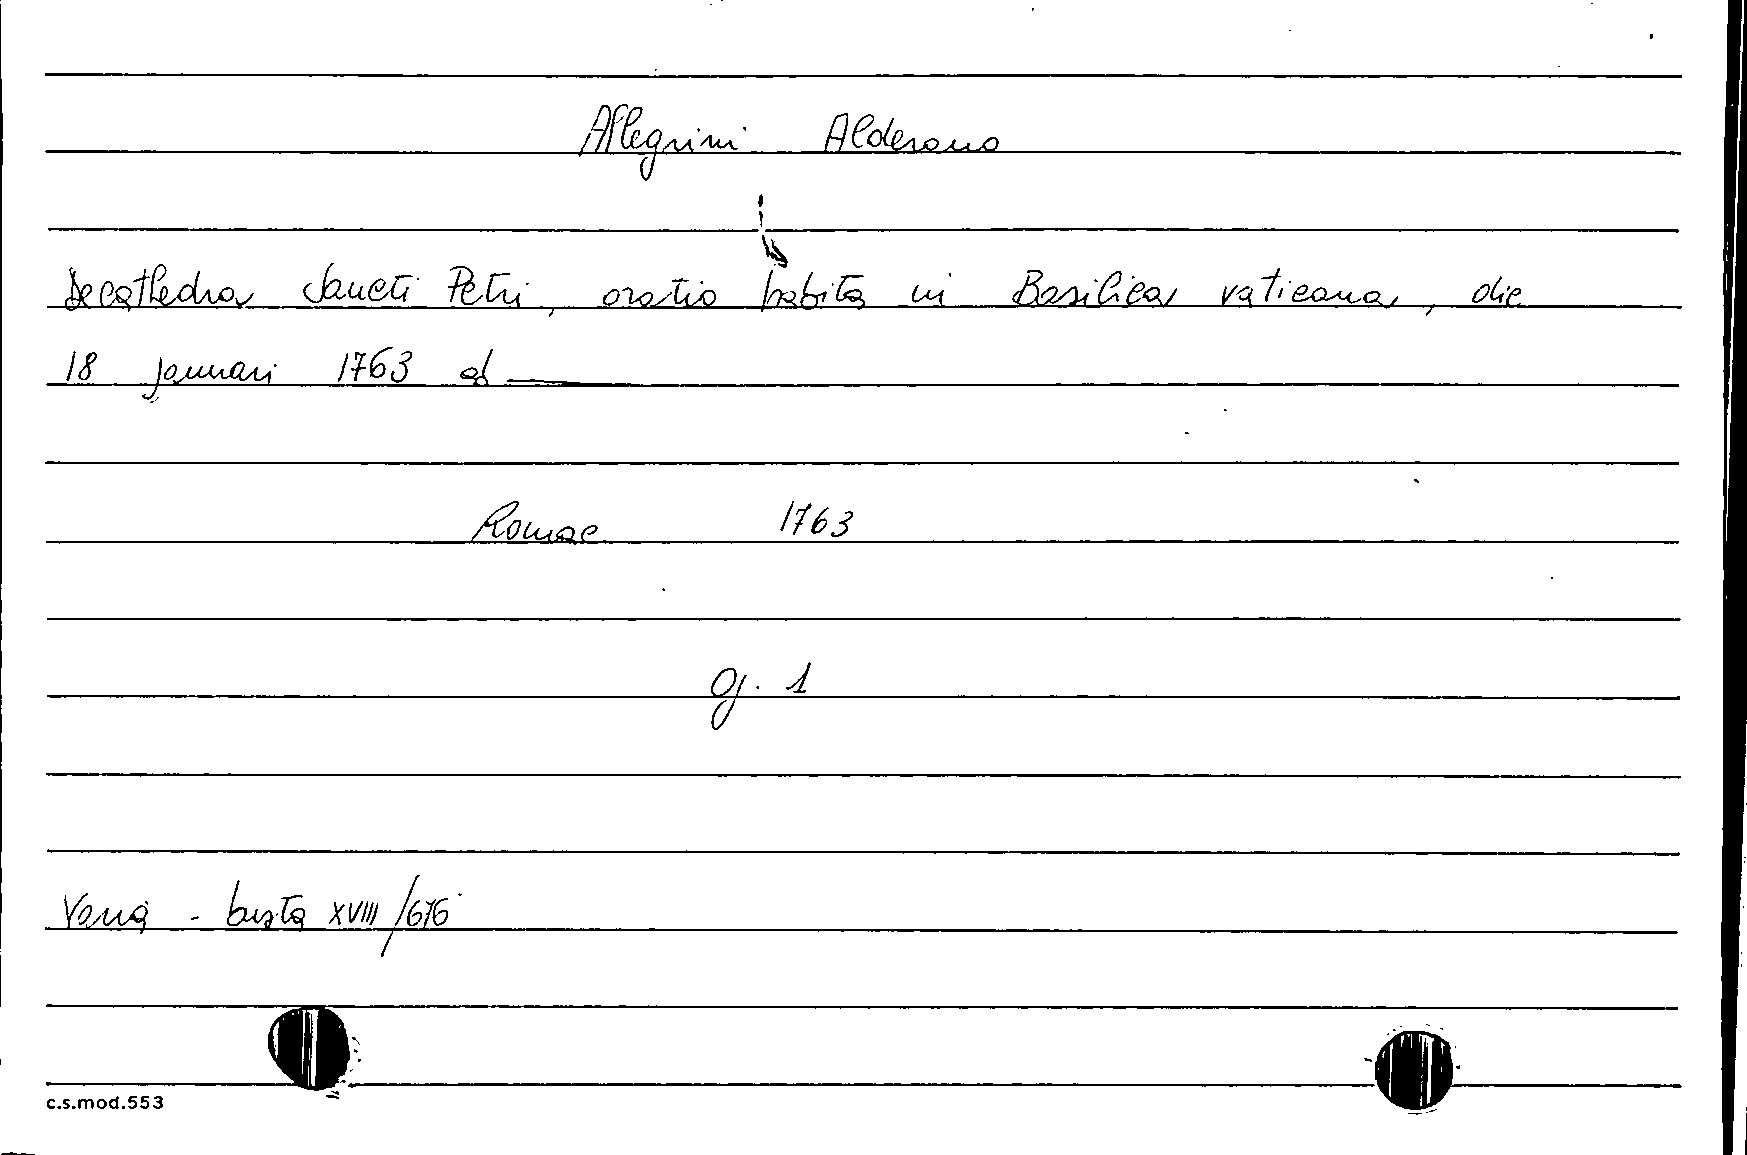 Allegrini Alderano
De cathedra Sancti Petri, oratio habita in Basilica vaticana, die
18 januari 1763 ad
Romae 1763
g. 1
Varia - busta XVIII/676
c.s.mod.553